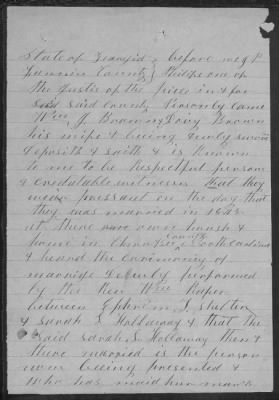 State of Georgia } before me J P
Fannin County } Philips one of
the Justis of the peice in & for
Said said County Personly came
Wm J Browning Loucy Brown
his wife & being duly sworn
deposith & saith & is known
to me to be respectful persons
& Credutable witnesses that they
were pressant on the day that
they was married in 184
at there own house &
home in County South Carolina
& heard the Ceremoney of
marrige Dewly performed
by the Rev Wm Roper
between Ephraim S. Shelton
& Sarah S Hollaway & that the
said Sarah S. Hollaway then &
there married is the person
now being presented &
Who has maid her mark